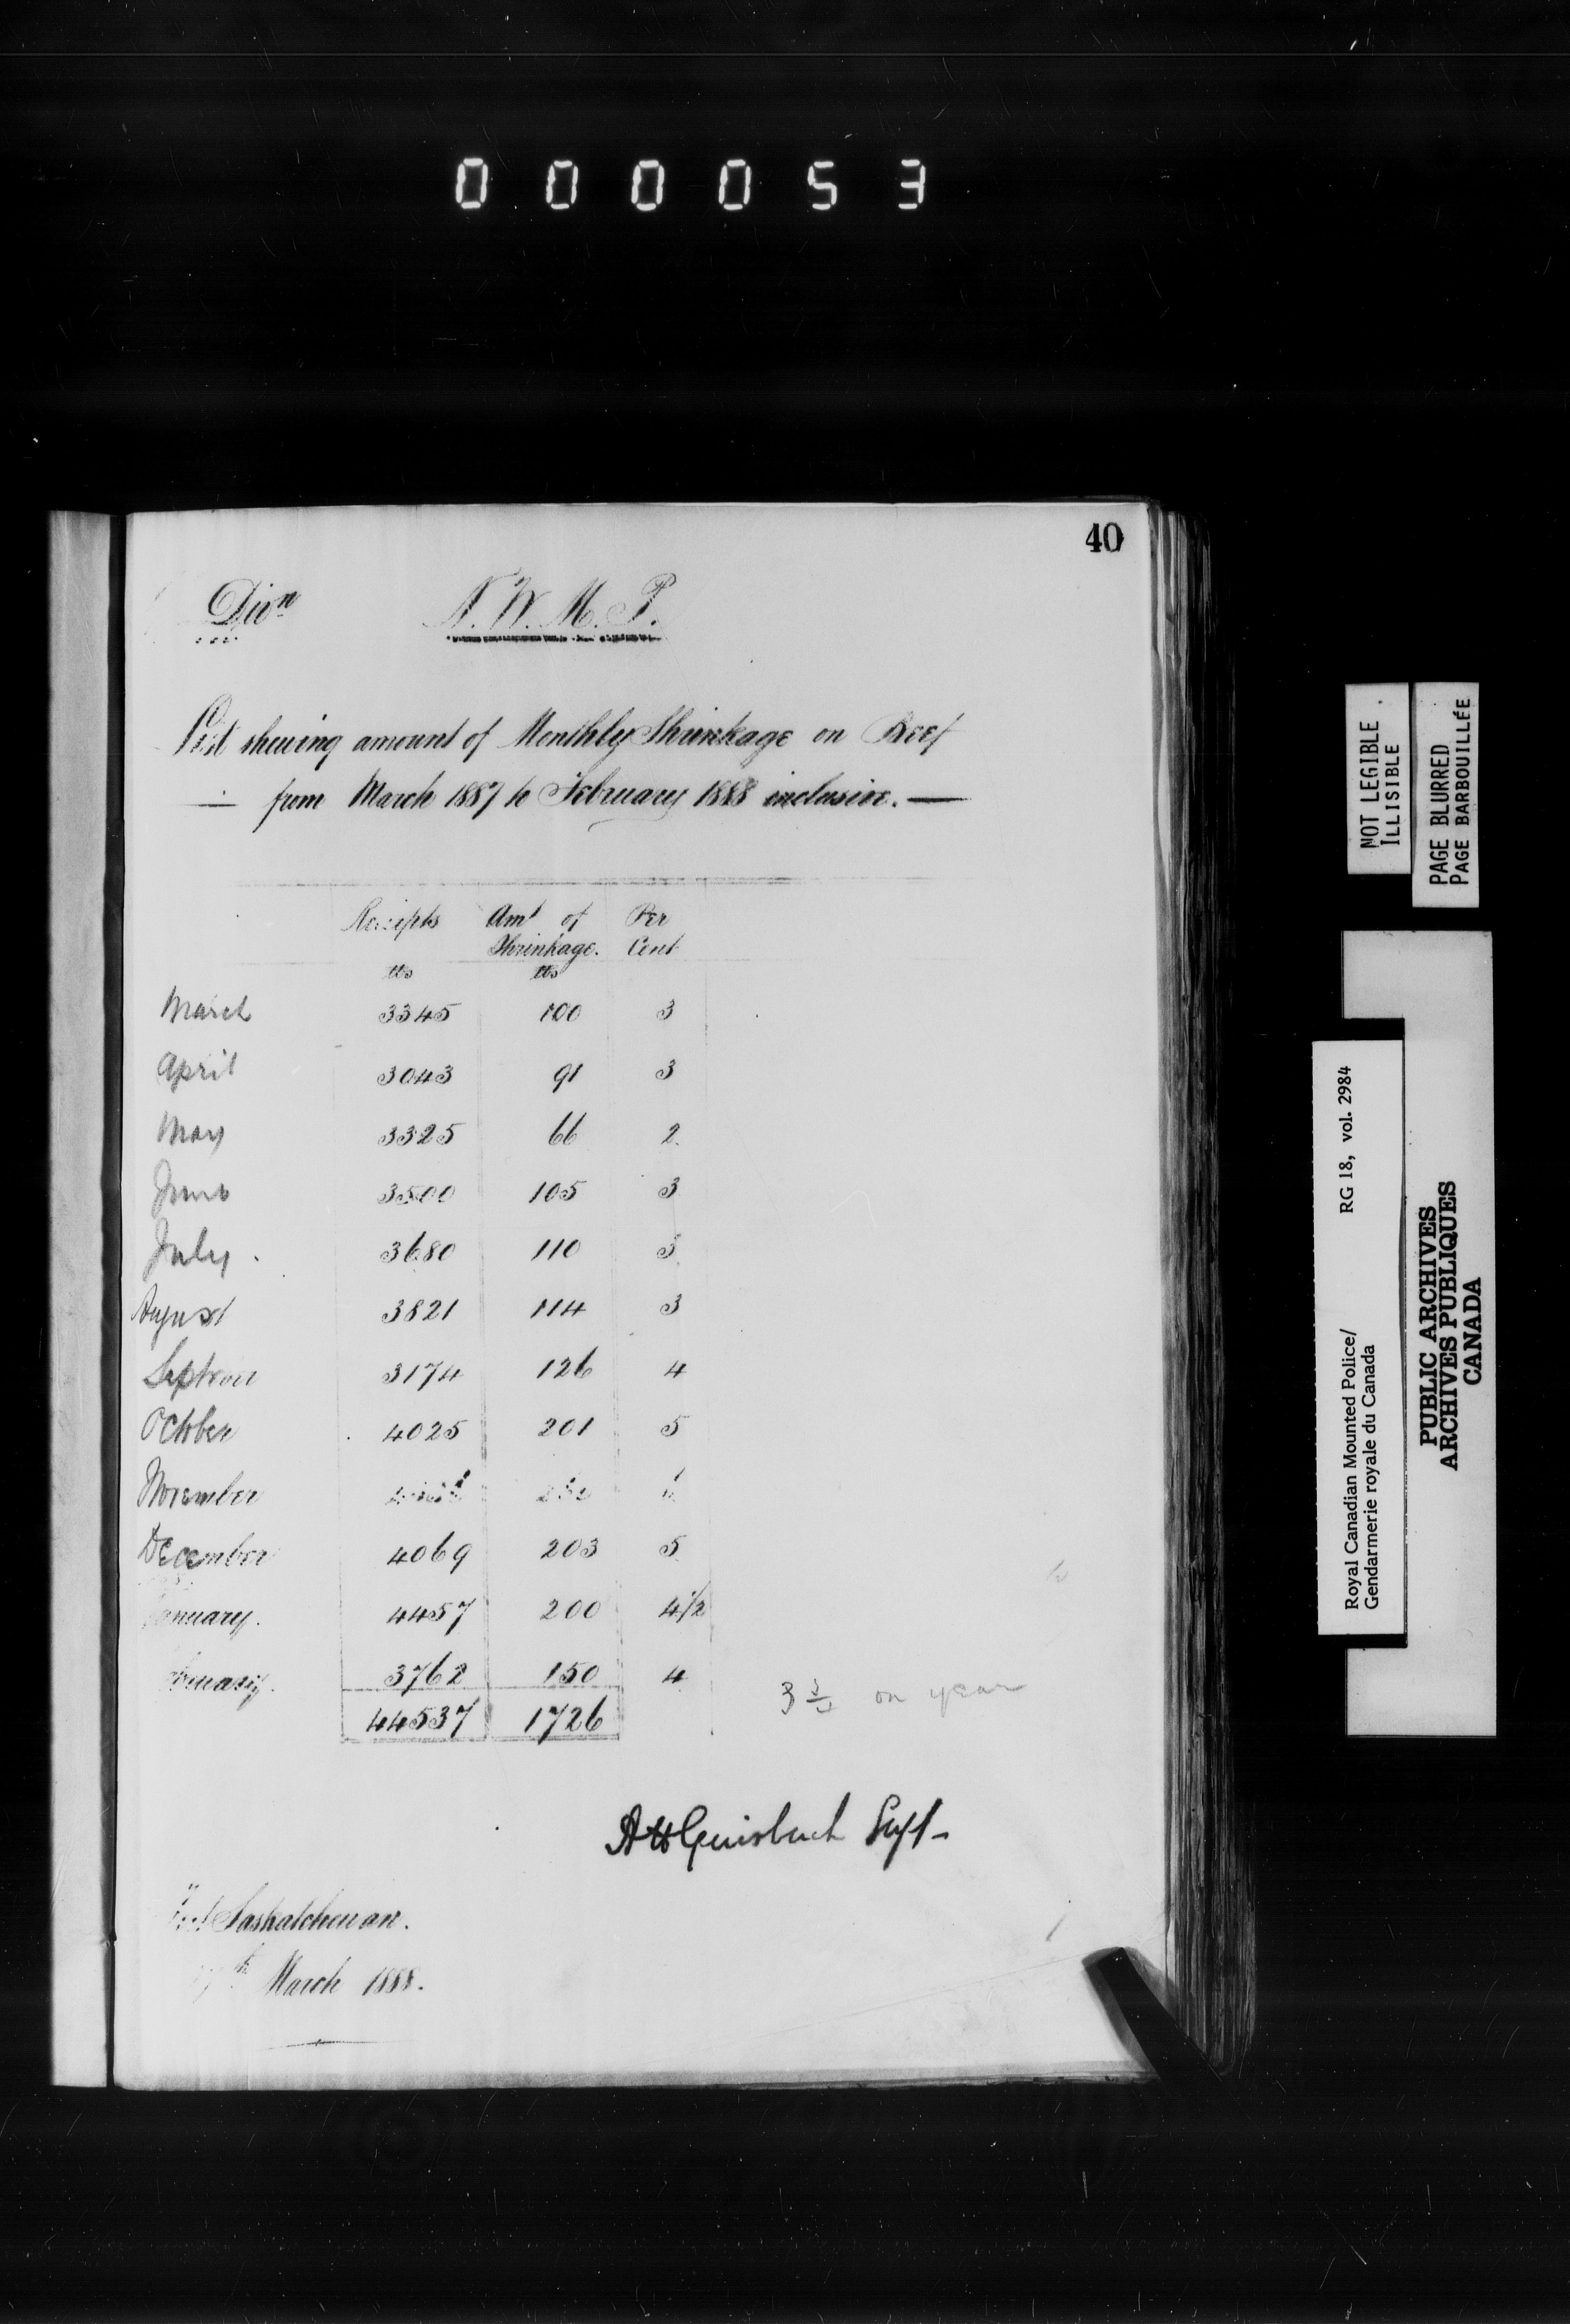 000053
40
Divn N. W. M. P.
List shewing amount of Monthly Shrinkage on Beef
from March 1887 to February 1888 inclusive.
Receipts Amt of Per
Shrinkage. Cent
lbs lbs
March 3345 100 3
April 3043 91 3
May 3325 66 2
June 3500 105 3
July 3680 110 3
August 3821 114 3
3174 126 4
October 4025 201 5
November
December 4069 203 5
January. 4457 200 4 1/2
February. 3762 150 4
44537 1726
on year
AHGriesbach Supt
Fort Saskatchewan.
March 1888.
NOT LEGIBLE
ILLISIBLE
PAGE BLURRED
PAGE BARBOUILLÉE
Royal Canadian Mounted Police/ RG 18, vol. 2984
Gendarmerie royale du Canada
PUBLIC ARCHIVES
ARCHIVES PUBLIQUES
CANADA